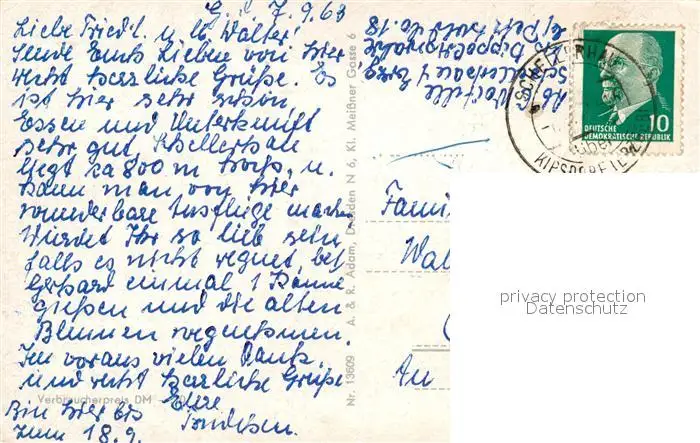 d. 7.9.63
Liebe Friedl. u. lb. Walter!
Sende Euch Lieben von hier
recht herzliche Grüße. Es
ist hier sehr schön,
Essen und Unterkunft
sehr gut. Schellerhau
liegt ca 800 m hoch, u.
kann man, von hier
wunderbare Ausflüge machen
Würdet Ihr so lieb sein
falls es nicht regnet, bei
Gerhard einmal 1 Kanne
gießen und die alten
Blumen wegnehmen.
Im voraus vielen Dank,
und recht herzliche Grüße
Eure
Bin hier bis
zum 18.9.
Verbraucherpreis DM
Nr. 13609 A. & R. Adam, Dresden N 6, Kl. Meißner Gasse 6
Schellerhau
DEUTSCHE
DEMOKRATISCHE REPUBLIK
10
SCHELLERHAU
KIPSDORF
Famili
Wal
An
privacy protection
Datenschutz